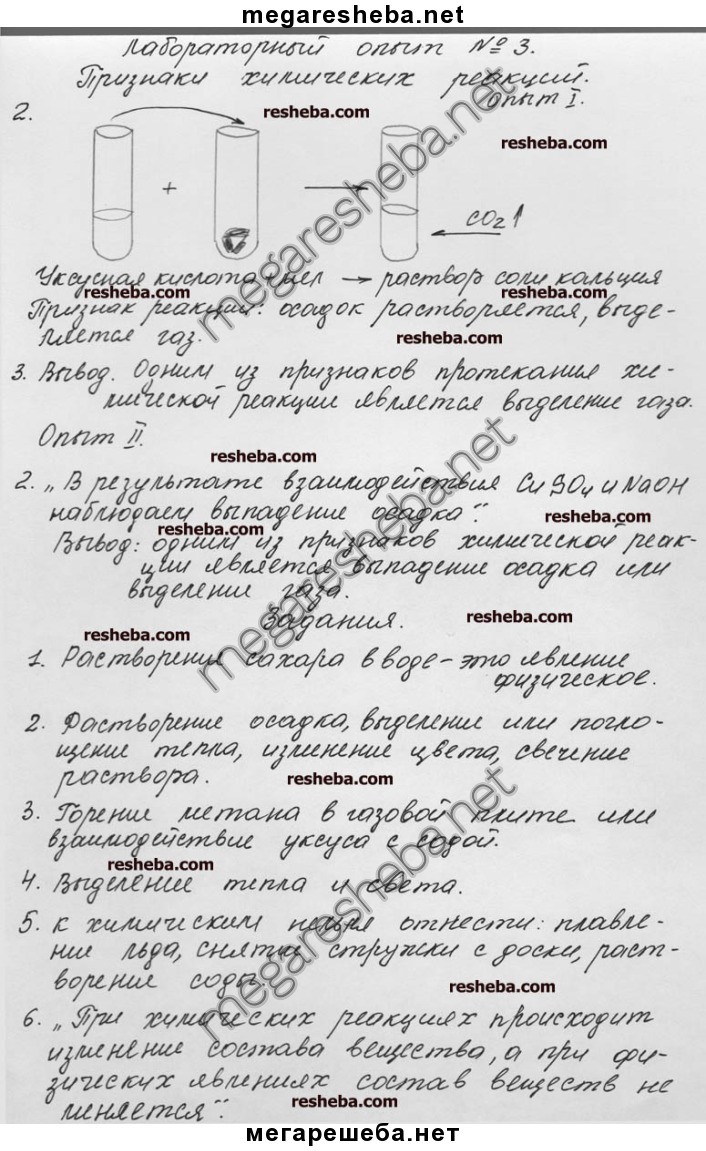 megaresheba.net
Лабораторный опыт № 3.
Признаки химических реакций.
Опыт I.
2.
resheba.com
resheba.com
+
CO2↑
Уксусная кислота + мел → раствор соли кальция
resheba.com
resheba.com
Признак реакции: осадок растворяется, выде-
ляется газ.
resheba.com
3. Вывод. Одним из признаков протекания хи-
мической реакции является выделение газа.
Опыт II.
resheba.com
2. „В результате взаимодействия CuSO4 и NaOH
наблюдаем выпадение осадка".
resheba.com
resheba.com
Вывод: одним из признаков химической реак-
ции является выпадение осадка или
выделение газа.
Задания.
resheba.com
resheba.com
1. Растворение сахара в воде - это явление
физическое.
2. Растворение осадка, выделение или погло-
щение тепла, изменение цвета, свечение
раствора.
resheba.com
3. Горение метана в газовой плите или
взаимодействие уксуса с содой.
resheba.com
4. Выделение тепла и света.
5. К химическим нельзя отнести: плавле-
ние льда, снятие стружки с доски, раст-
ворение соды.
resheba.com
6. „При химических реакциях происходит
изменение состава вещества, а при фи-
зических явлениях состав веществ не
меняется".
resheba.com
megaresheba.net
megaresheba.net
megaresheba.net
мегарешеба.нет